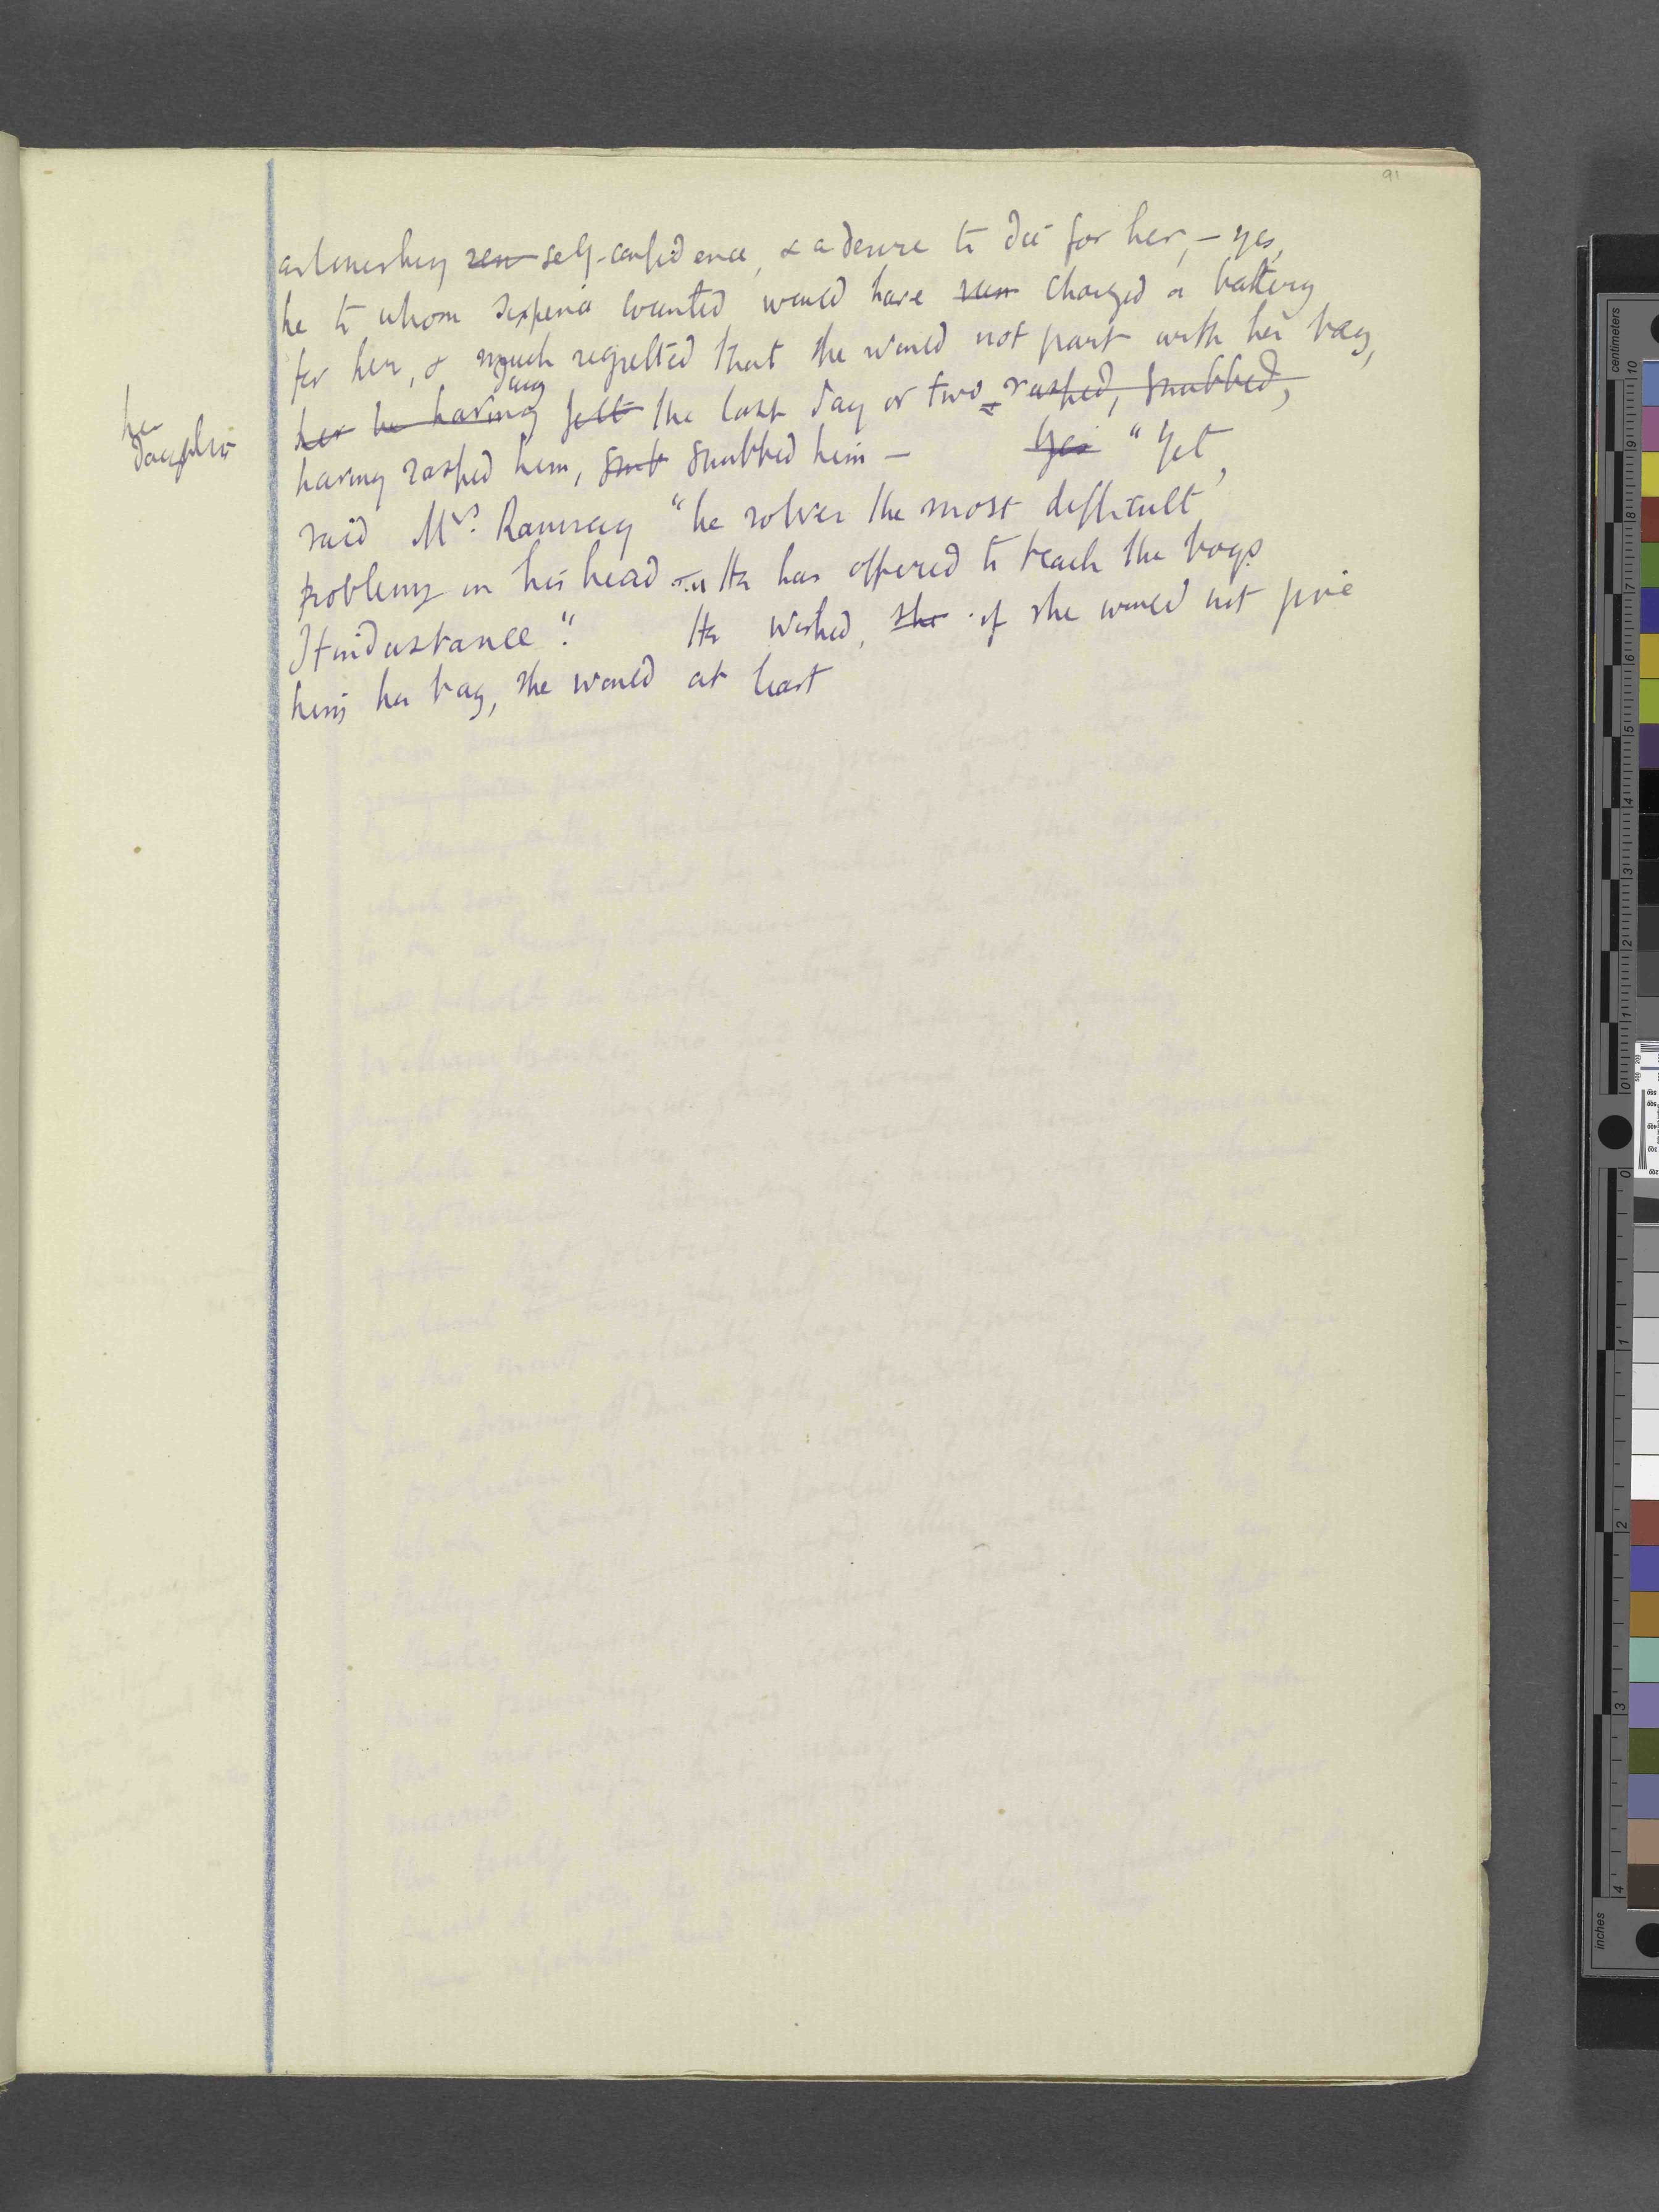 91
astonishing ren self-confidence, & a desire to die for her, – yes,
he to whom sixpence counted would have run charged a battery
for her, & much regretted that she would not part with her bag,
her he having felt the last day or two – rasped, snubbed,
her
daughter
having rasped him, snub snubbed him – Yes "Yet,
said Mrs. Ramsay "he solves the most difficult
problems in his head – He has offered to teach the boys
Hindustanee". He wished, she if she would not give
him her bag, she would at least